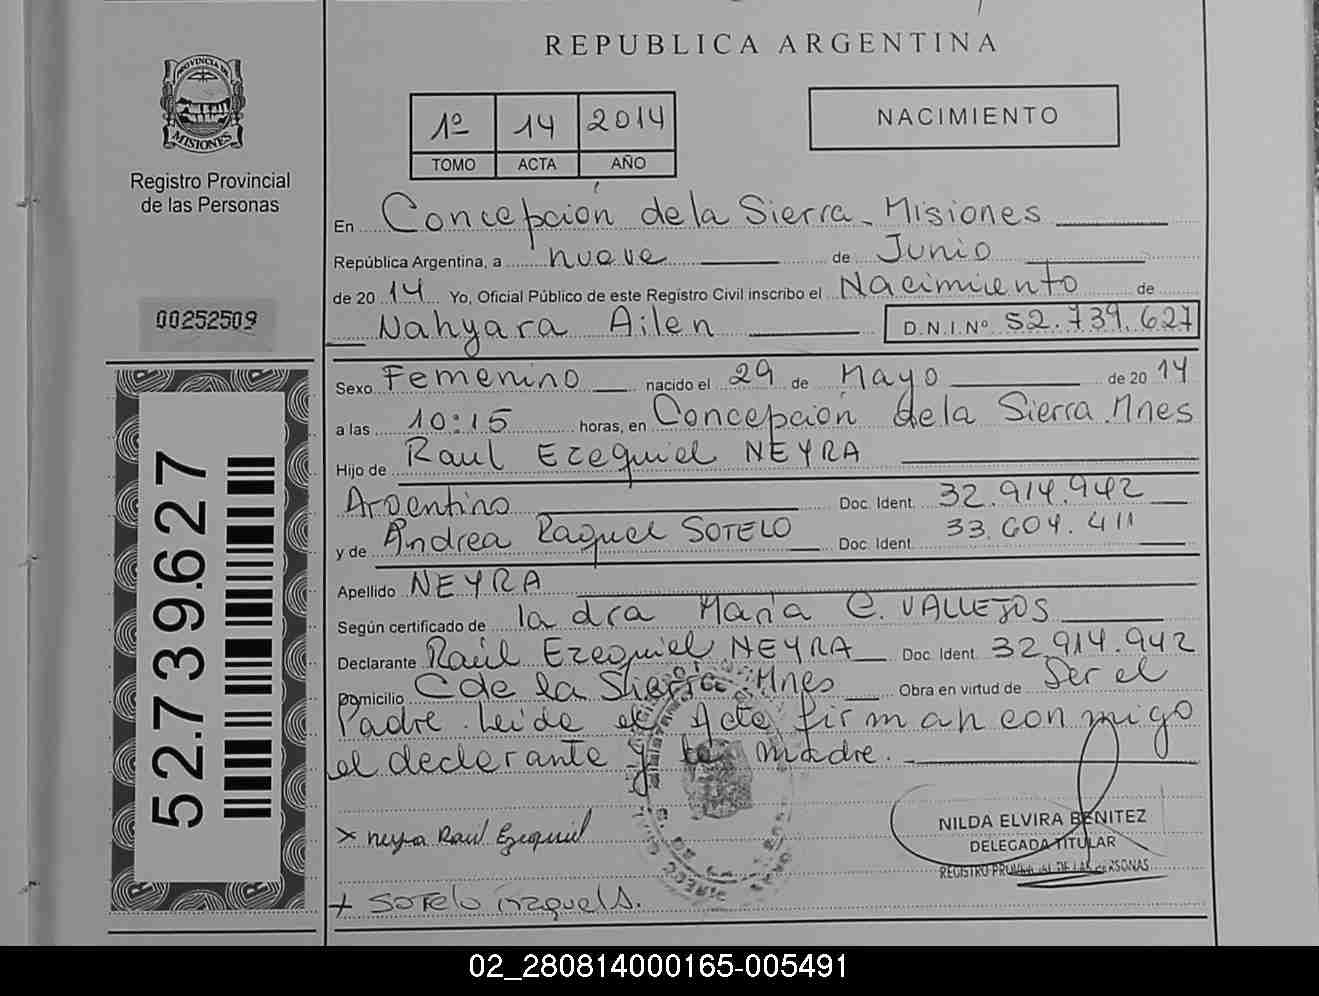 REPUBLICA ARGENTINA
PROVINCIA DE
MISIONES
Registro Provincial
de las Personas
1º 14 2014
TOMO ACTA AÑO
NACIMIENTO
En Concepción de la Sierra - Misiones
República Argentina, a nueve de Junio
de 20 14 Yo, Oficial Público de este Registro Civil inscribo el Nacimiento de
00252509
Nahyara Ailen D.N.I.Nº 52.739.627
Sexo Femenino nacido el 29 de Mayo de 20 14
a las 10:15 horas, en Concepción de la Sierra. Mnes
Hijo de Raul Ezequiel NEYRA
Argentino Doc. Ident. 32.914.942
y de Andrea Raquel SOTELO Doc. Ident. 33.604.411
Apellido NEYRA
Según certificado de la dra María C. VALLEJOS
Declarante Raúl Ezequiel NEYRA Doc. Ident. 32.914.942
Domicilio C de la Sierra. Mnes Obra en virtud de Ser el
Padre. Leida el Acta firman conmigo
el declarante y la madre.
52.739.627
NILDA ELVIRA BENITEZ
DELEGADA TITULAR
REGISTRO PROVINCIAL DE LAS PERSONAS
x neyra Raul Ezequiel
+ SOTELO Raquel A.
02_280814000165-005491